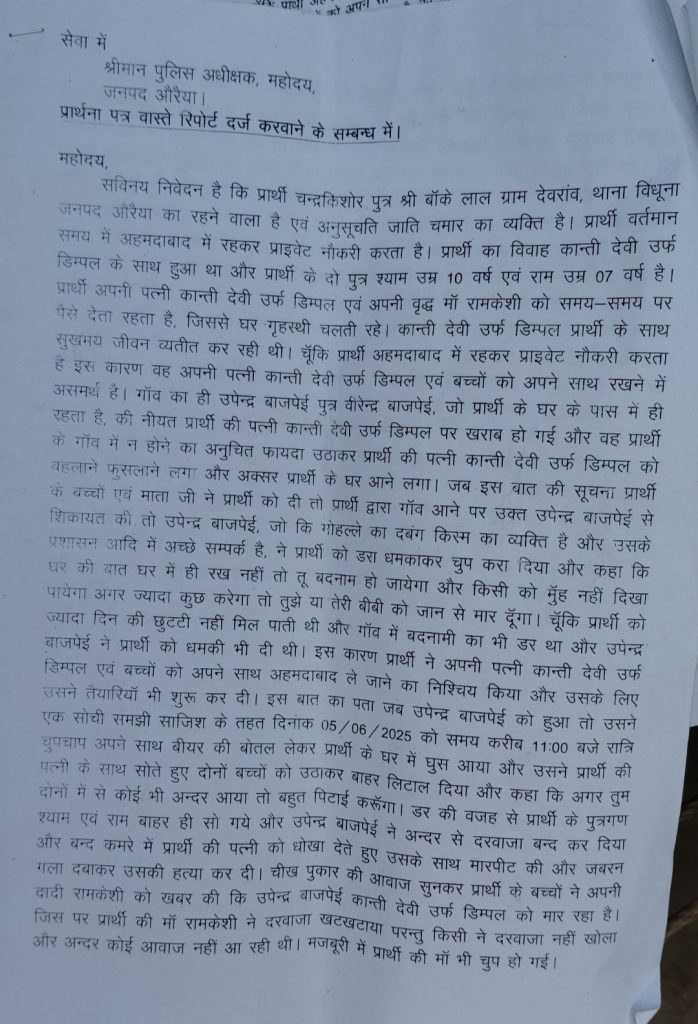 को अपने
सेवा में
श्रीमान पुलिस अधीक्षक, महोदय,
जनपद औरैया।
प्रार्थना पत्र वास्ते रिपोर्ट दर्ज करवाने के सम्बन्ध में।
महोदय,
सविनय निवेदन है कि प्रार्थी चन्द्रकिशोर पुत्र श्री बॉके लाल ग्राम देवरांव, थाना विधूना
जनपद औरैया का रहने वाला है एवं अनुसूचति जाति चमार का व्यक्ति है। प्रार्थी वर्तमान
समय में अहमदाबाद में रहकर प्राइवेट नौकरी करता है। प्रार्थी का विवाह कान्ती देवी उर्फ
डिम्पल के साथ हुआ था और प्रार्थी के दो पुत्र श्याम उम्र 10 वर्ष एवं राम उम्र 07 वर्ष है।
प्रार्थी अपनी पत्नी कान्ती देवी उर्फ डिम्पल एवं अपनी वृद्ध मॉ रामकेशी को समय–समय पर
पैसे देता रहता है, जिससे घर गृहस्थी चलती रहे। कान्ती देवी उर्फ डिम्पल प्रार्थी के साथ
सुखमय जीवन व्यतीत कर रही थी। चूँकि प्रार्थी अहमदाबाद में रहकर प्राइवेट नौकरी करता
है इस कारण वह अपनी पत्नी कान्ती देवी उर्फ डिम्पल एवं बच्चों को अपने साथ रखने में
असमर्थ है। गॉव का ही उपेन्द्र बाजपेई पुत्र वीरेन्द्र बाजपेई, जो प्रार्थी के घर के पास में ही
रहता है, की नीयत प्रार्थी की पत्नी कान्ती देवी उर्फ डिम्पल पर खराब हो गई और वह प्रार्थी
के गॉव में न होने का अनुचित फायदा उठाकर प्रार्थी की पत्नी कान्ती देवी उर्फ डिम्पल को
बहलाने फुसलाने लगा और अक्सर प्रार्थी के घर आने लगा। जब इस बात की सूचना प्रार्थी
के बच्चों एवं माता जी ने प्रार्थी को दी तो प्रार्थी द्वारा गॉव आने पर उक्त उपेन्द्र बाजपेई से
शिकायत की तो उपेन्द्र बाजपेई, जो कि गोहल्ले का दबंग किस्म का व्यक्ति है और उसके
प्रशासन आदि में अच्छे सम्पर्क है, ने प्रार्थी को डरा धमकाकर चुप करा दिया और कहा कि
घर की बात घर में ही रख नहीं तो तू बदनाम हो जायेगा और किसी को मुँह नहीं दिखा
पायेगा अगर ज्यादा कुछ करेगा तो तुझे या तेरी बीबी को जान से मार दूँगा। चूँकि प्रार्थी को
ज्यादा दिन की छुटटी नहीं मिल पाती थी और गॉव में बदनामी का भी डर था और उपेन्द्र
बाजपेई ने प्रार्थी को धमकी भी दी थी। इस कारण प्रार्थी ने अपनी पत्नी कान्ती देवी उर्फ
डिम्पल एवं बच्चों को अपने साथ अहमदाबाद ले जाने का निश्चिय किया और उसके लिए
उसने तैयारियॉ भी शुरू कर दी। इस बात का पता जब उपेन्द्र बाजपेई को हुआ तो उसने
एक सोची समझी साजिश के तहत दिनांक 05/06/2025 को समय करीब 11:00 बजे रात्रि
चुपचाप अपने साथ बीयर की बोतल लेकर प्रार्थी के घर में घुस आया और उसने प्रार्थी की
पत्नी के साथ सोते हुए दोनों बच्चों को उठाकर बाहर लिटाल दिया और कहा कि अगर तुम
दोनों में से कोई भी अन्दर आया तो बहुत पिटाई करूँगा। डर की वजह से प्रार्थी के पुत्रगण
श्याम एवं राम बाहर ही सो गये और उपेन्द्र बाजपेई ने अन्दर से दरवाजा बन्द कर दिया
और बन्द कमरे में प्रार्थी की पत्नी को धोखा देते हुए उसके साथ मारपीट की और जबरन
गला दबाकर उसकी हत्या कर दी। चीख पुकार की आवाज सुनकर प्रार्थी के बच्चों ने अपनी
दादी रामकेशी को खबर की कि उपेन्द्र बाजपेई कान्ती देवी उर्फ डिम्पल को मार रहा है।
जिस पर प्रार्थी की मॉ रामकेशी ने दरवाजा खटखटाया परन्तु किसी ने दरवाजा नहीं खोला
और अन्दर कोई आवाज नहीं आ रही थी। मजबूरी में प्रार्थी की मॉ भी चुप हो गई।